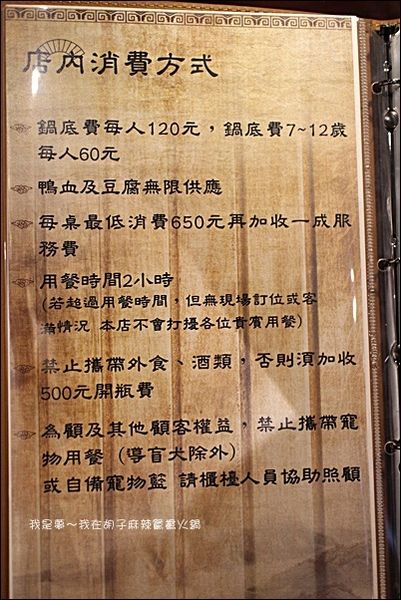 店內消費方式
鍋底費每人120元，鍋底費7~12歲
每人60元
鴨血及豆腐無限供應
每桌最低消費650元再加收一成服
務費
用餐時間2小時
(若超過用餐時間，但無現場訂位或客
滿情況 本店不會打擾各位貴賓用餐)
禁止攜帶外食、酒類，否則須加收
500元開瓶費
為顧及其他顧客權益，禁止攜帶寵
物用餐 (導盲犬除外)
或自備寵物籃 請櫃檯人員協助照顧
我是夢~我在胡子麻辣鴛鴦火鍋